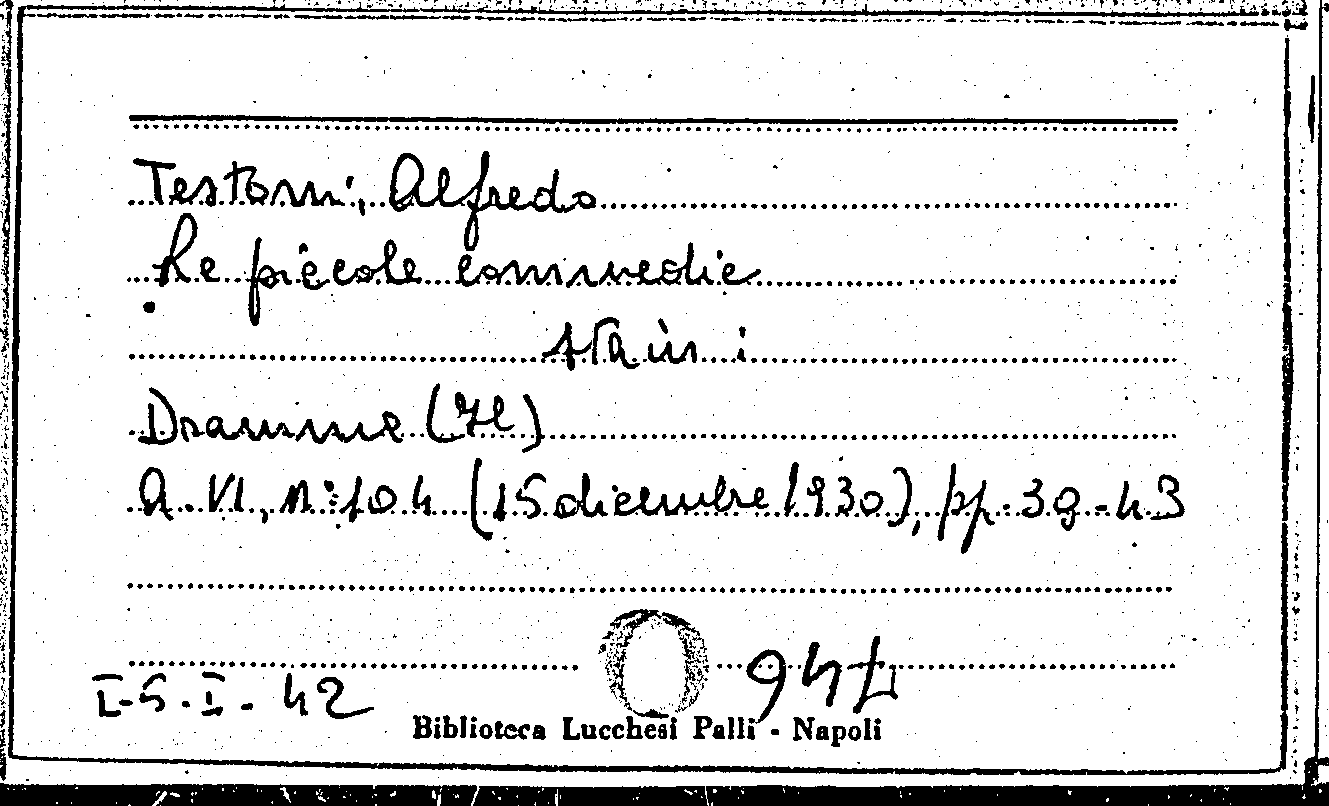 Testoni, Alfredo
Le piccole commedie
sta in :
Dramma (Il)
A. VI, n: 104 (15 dicembre 1930), pp. 39-43
I-5.I-42
Biblioteca Lucchesi Palli - Napoli